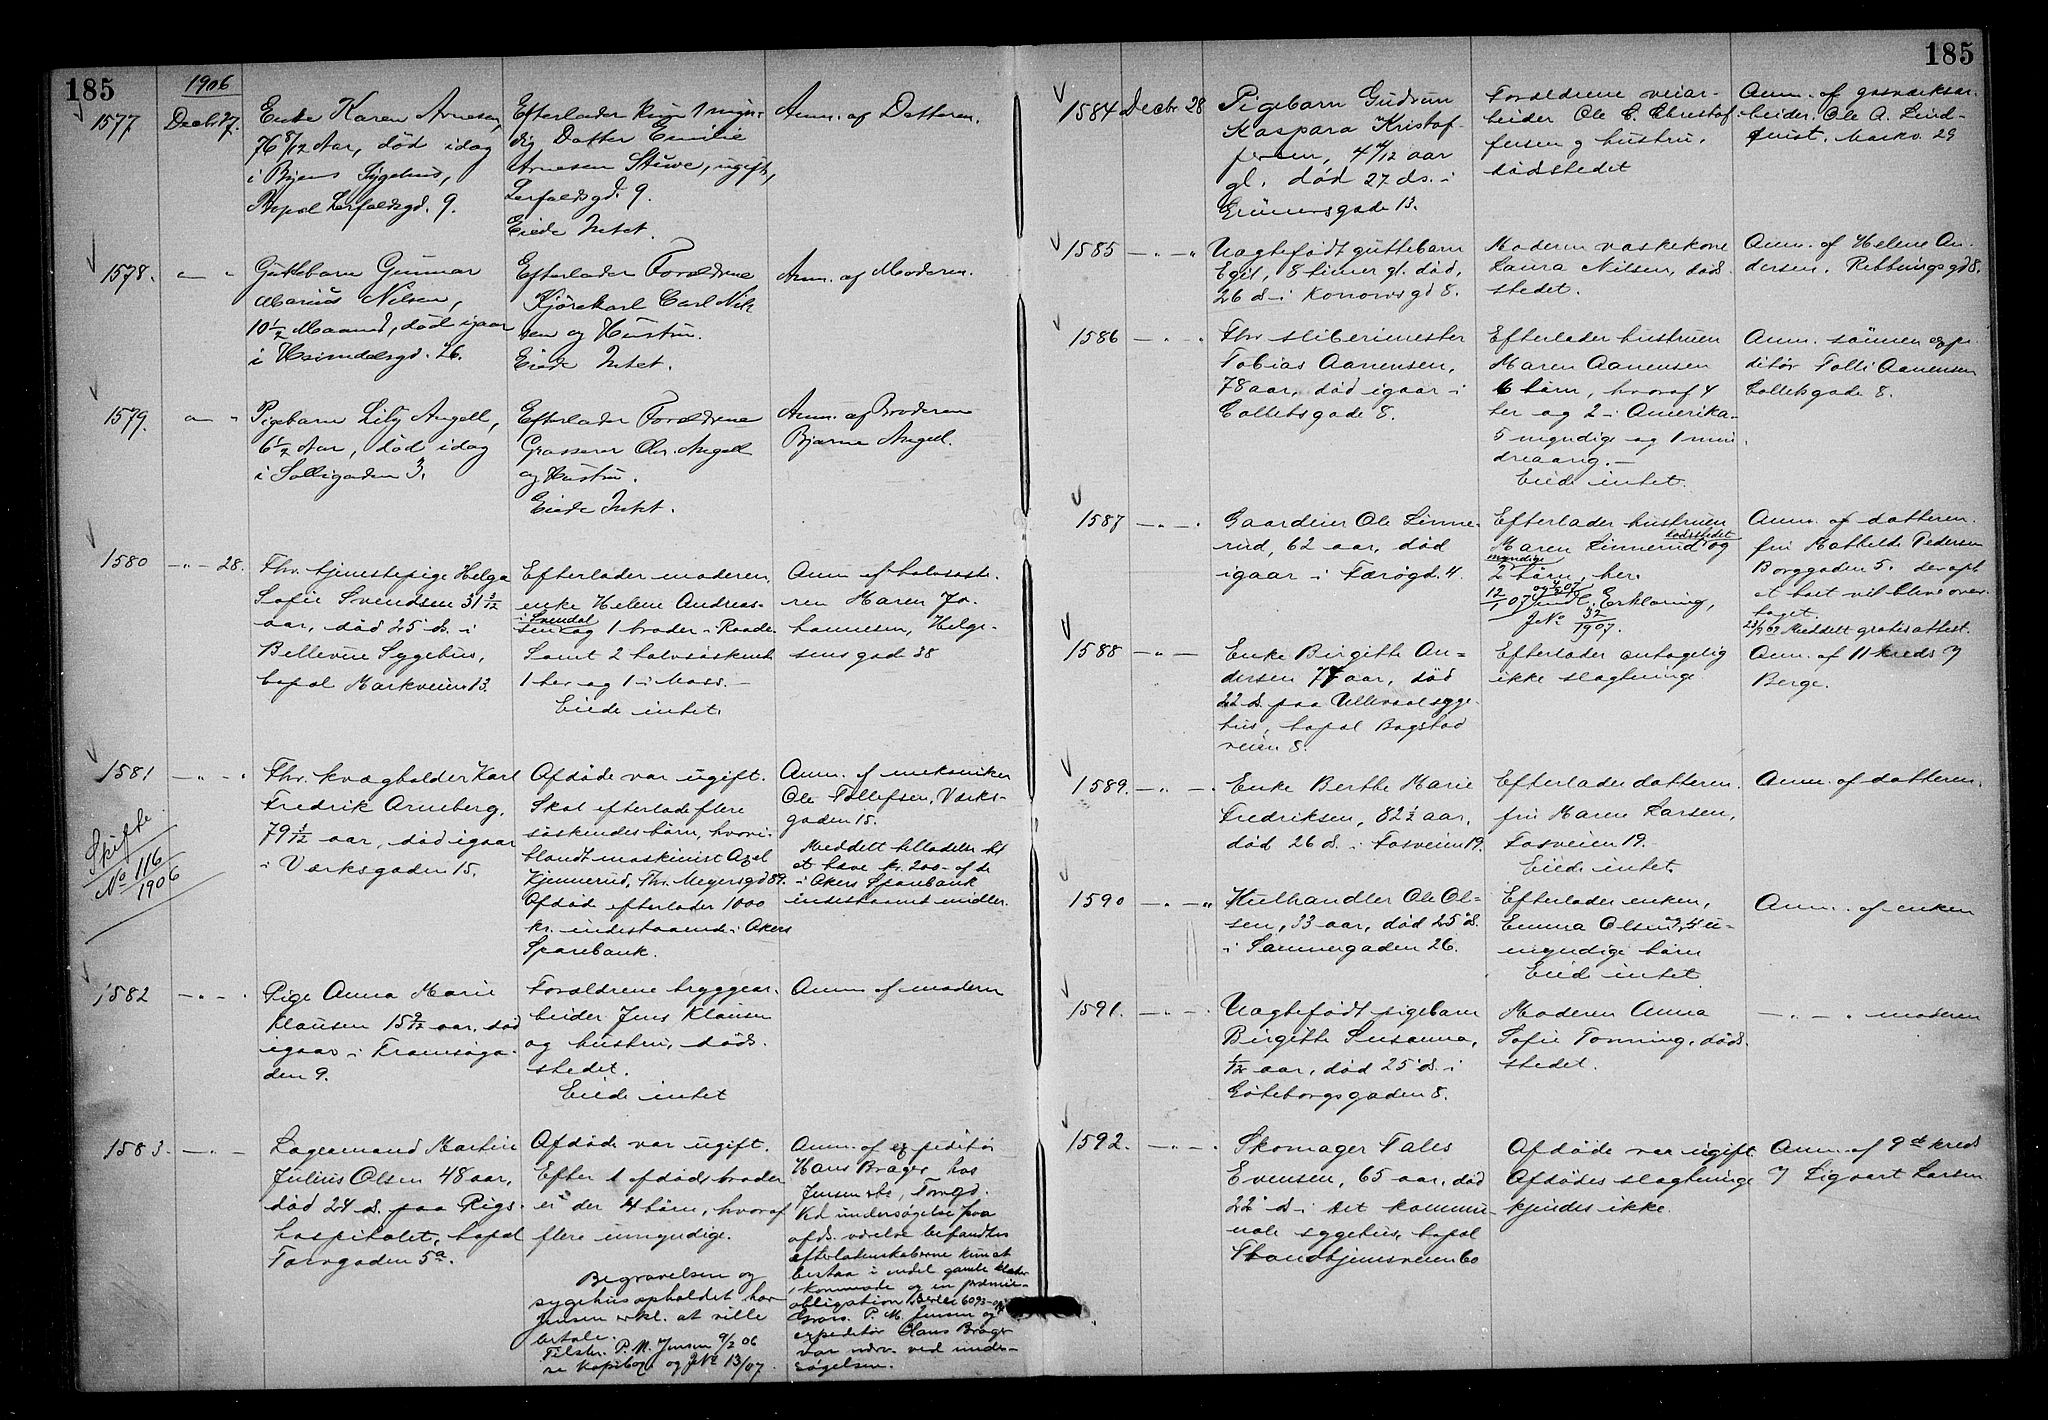 185
1906
1577
Decbr 27.
Enke Karen Arnesen,
76 8/12 Aar, død idag
i Byens Sygehus,
Bopæl Lerfaldsgd. 9.
Efterlader kun 1 myn-
dig Datter Emilie
Arnesen Stuwe, ugift,
Lerfaldsgd. 9.
Eiede Intet.
Anm. af Datteren.
1578.
Guttebarn Gunnar
Marius Nilsen,
10 1/2 Maaned, død igaar
i Heimdalsgd. 26.
Efterlader Forældrene
Kjørekarl Carl Nil-
sen og Hustru.
Eiede Intet.
Anm. af Moderen.
1579.
Pigebarn Lily Angell,
6 1/2 Aar, død idag
i Solligaden 3.
Efterlader Forældrene
Grosserer Chr. Angell
og Hustru.
Eiede Intet.
Anm. af Broderen
Bjarne Angell.
1580
-„- 28.
Fhv. tjenestepige Helga
Sofie Svendsen 31 3/12
aar, død 25 ds. i
Bellevue Sygehus,
bopæl Markveien 13.
Efterlader moderen,
enke Helene Andreas-
sen i Svendal og 1 broder i Raade.
Samt 2 halvsøskend
1 her og 1 i Moss.-
Eiede intet.
Anm af halvsøste-
ren Maren Jo-
hannesen, Helge-
sens gade 38
1581
-„-
Skifte
No 116
1906
Fhv. kvægholder Karl
Fredrik Arneberg,
79 1/12 aar, død igaar
i Verksgaden 15.
Afdøde var ugift.
Skal efterlade flere
søskendes børn, hvori-
blandt maskinist Axel
Kjennerud, Thv. Meyersgd 89.
Afdøde efterlader 1000
kr. indestaaende i Akers
Sparebank.
Anm. af mekaniker
Ole Tollefsen, Værks-
gaden 15.
Meddelt tilladelse til
at hæve kr. 200- af de
i Akers Sparebank
indestaaende midler.
1582
-„-
Pige Anna Marie
Klausen 15 9/12 aar, død
igaar i Tromsøga-
den 9.
Forældrene bryggear-
beider Jens Klausen
og hustru, døds-
stedet.
Eiede intet
Anm af moderen
1583.
-„-
Lagermand Martin
Julius Olsen 48 aar,
død 24 ds. paa Rigs-
hospitalet, bopæl
Torvgaden 5a.
Afdøde var ugift.
Efter 1 afdød broder
er der 4 børn, hvoraf
flere umyndige.
Begravelsen og
sygehusopholdet har
Jensen erkl. at ville
betale.
Tilstr. P. M. Jensen 9/2 06
se Kopibog og JNo 13/07.
Anm. af expeditør
Hans Brager hos
Jensen &co, Torvgd.
Ved undersøgelse paa
afds. værelse befandtes
efterladenskaberne kun at
bestaa i endel gamle klæder
, kommode og en præmie-
obligation Serie 6093-
Gross. P. M. Jensen og
expeditør Hans Brager
var nærv. ved under-
søgelsen.
185
1584
Decbr. 28
Pigebarn Gudrun
Kaspara Kristof-
fersen, 4 4/12 aar
gl. død 27 ds. i
Grünersgade 13.
Forældrene veiar-
beider Ole C. Christof-
fersen og hustru,
dødsstedet
Anm. af gasværksar-
beider Ole A. Lind-
quist, Markv. 29
1585
-„-
Uægtefødt guttebarn
Egil, 8 timer gl. død,
26 ds i Konowsgd 8.
Moderen vaskekone
Laura Nilsen, døds-
stedet.
Anm. af Helene An-
dersen, Rebbingsgd 8.
1586
-„-
Fhv sliberimester
Tobias Aanensen,
78 aar, død igaar i
Colletsgade 8.
Efterlader hustruen
Maren Aanensen
6 børn, hvoraf 4
her og 2 i Amerika-
5 myndige og 1 min-
dreaarig.-
Eiede intet.
Anm. sønnen expe-
ditør Tolli Aanensen
Colletsgade 8.
1587
-„-
Gaardeier Ole Linne-
rud, 62 aar, død
igaar i Færøgd. 4.
Efterlader hustruen
Maren Linnerud dødsstedet og
myndige
2 børn, her.
12/1 07 Erklæring,
JNo 32/1907.
Anm. af datteren
fru Mathilde Pedersen
Borggaden 5. der opl.
at boet vil blive over-
taget.
23/9 62 Meddelt gratis attest.
1588
-„-
Enke Birgitte An=
dersen 77 aar, død
22 ds. paa Ullevaal syge-
hus, bopæl Bogstad
veien 8.
Efterlader antagelig
ikke slægtninge.
Anm. af 11 kreds v
Berge.
1589.
-„-
Enke Berthe Marie
Fredriksen, 82 1/2 aar,
død 26 ds. i Fosveien 19.
Efterlader datteren
fru Maren Larsen,
Fosveien 19.
Eiede intet.
Anm. af datteren.
1590
-„-
Kulhandler Ole Ol-
sen, 33 aar, død 25 ds.
i Sannergaden 26.
Efterlader enken,
Emma Olsen, 4 u-
myndige børn
Eiede intet
Anm. af enken
1591.
-„-
Uægtefødt pigebarn
Birgitte Susanna,
1/12 aar, død 25 ds. i
Gøteborgsgaden 8.
Moderen Anna
Sofie Tonning, døds-
stedet.
-„- moderen
1592.
-„-
Skomager Tales
Evensen, 65 aar, død
22 ds i det kommu-
nale sygehus, bopæl
Throndhjemsveien 60
Afdøde var ugift.
Afdødes slægtninge
kjendes ikke.
Anm. af 9de kreds
v Sigvart Larsen